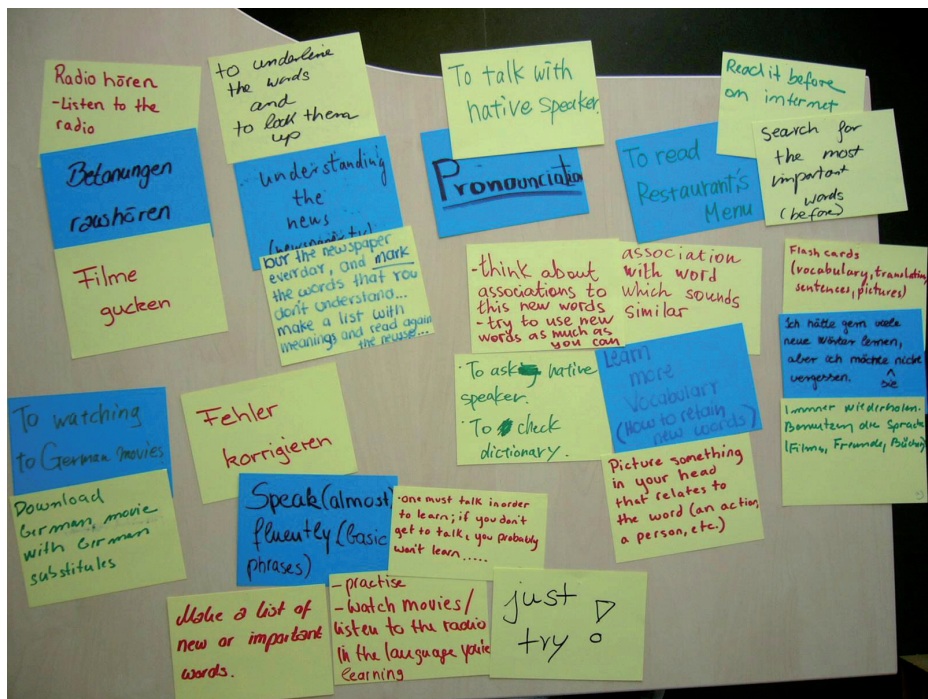 Radio hören
-Listen to the
radio
Betonungen
raushören
Filme
gucken
to underline
the words
and
to look them
up
understanding
the
news
buy the newspaper
everyday, and mark
the words that you
don't understand...
make a list with
meanings and read again
the news...
To talk with
native speaker
Pronounciation
To read
Restaurant's
Menu
Read it before
on internet
search for
the most
important
words
(before)
-think about
associations to
this new words
-try to use new
words as much as
you can
association
with word
which sounds
similar
Flash cards
(vocabulary, translation,
sentences, pictures)
Ich hätte gern viele
neue Wörter lernen,
aber ich möchte nicht
vergessen.
sie
Immer wiederholen.
Benutzen die Sprache
(Filme, Freunde, Bücher)
·To ask native
speaker.
·To check
dictionary.
Learn
more
Vocabulary
(How to retain
new words)
Picture something
in your head
that relates to
the word (an action,
a person, etc.)
To watching
to German movies
Download
German movie
with German
substitules
Fehler
korrigieren
Speak (almost)
fluently (basic
phrases)
·one must talk in order
to learn; if you don't
get to talk, you probably
won't learn.....
Make a list of
new or important
words.
-practise
-watch movies/
listen to the radio
in the language you're
learning
just
try!